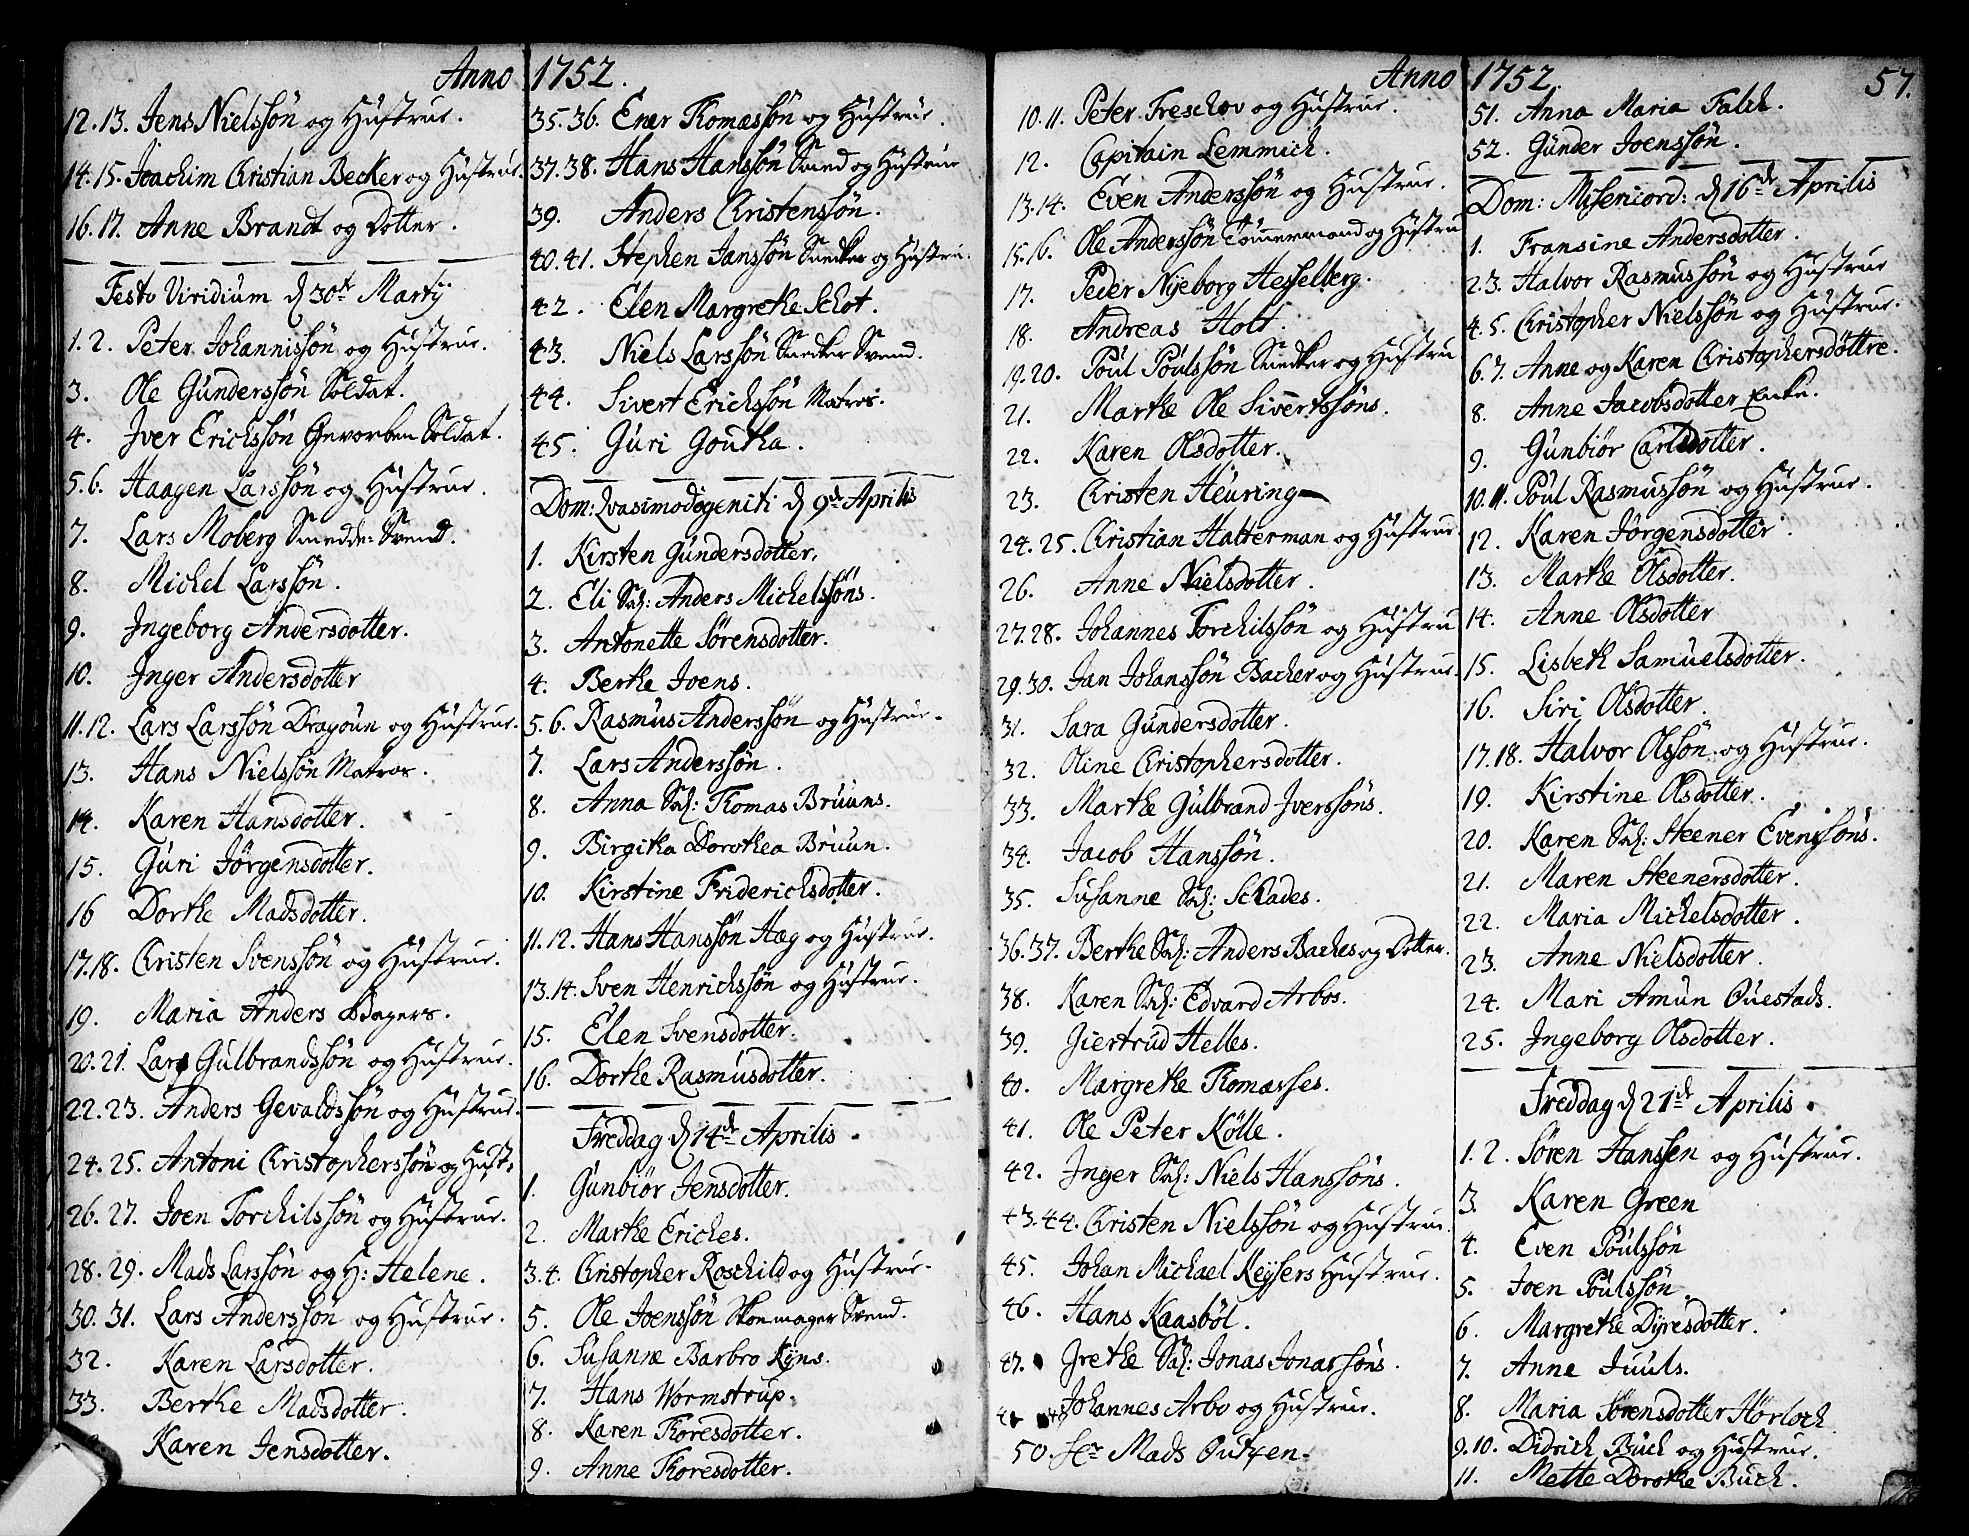 Anno 1752.
12.13. Jens Nielssön og Hustrue.
14.15. Joachim Christian Becker og Hustrue.
16.17. Anne Brandt og Dotter.
Festo Viridium d 30te Martij
1.2. Peter Johannissön og Hustrue.
3. Ole Gunderssön Soldat.
4. Jver Erichssön Gevorben Soldat.
5.6. Haagen Larssön og Hustrue.
7. Lars Moberg Smedde-Svend.
8. Michel Larssön.
9. Jngeborg Andersdotter.
10. Jnger Andersdotter
11.12. Lars Larssön Dragoun og Hustrue.
13. Hans Nielssön Matros.
14. Karen Hansdotter.
15. Guri Jörgensdotter.
16 Dorthe Madsdotter.
17.18. Christen Svenssön og Hustrue.
19. Maria Anders
20.21. Lars Gulbrandssön og Hustrue.
22.23. Anders Gevaldssön og Hustrue.
24.25. Antoni Christopherssön og Hust:
26.27. Joen Torchilssön og Hustrue.
28.29. Mads Larssön og H: Helene.
30.31. Lars Anderssön og Hustrue.
32. Karen Larsdotter.
33. Berthe Madsdotter.
Karen Jensdotter.
35.36. Ener Thomassön og Hustrue.
37.38. Hans Hanssön Smed og Hustrue
39. Anders Christenssön.
40.41. Stephen Janssön Snedker og Hustru.
42. Elen Margrethe Schot.
43. Niels Larssön Snedker Svend.
44. Sivert Erichssön Matros.
45. Guri Goutha.
Dom: Qvasimodogeniti d 9de Aprilis
1. Kirsten Gundersdotter.
2. Eli Sal: Anders Michelssöns.
3. Antonette Sörensdotter.
4. Berthe Joens.
5.6. Rasmus Anderssön og Hustrue.
7. Lars Anderssön.
8. Anna Sal: Thomas Bruuns.
9. Birgitha Dorothea Bruun.
10. Kirstine Friderichsdotter.
11.12. Hans Hanssön Hæg og Hustrue.
13.14. Sven Henrichssön og Hustrue.
15. Elen Svensdotter.
16. Dorthe Rasmusdotter.
Freddag d 14de Aprilis.
1. Gunbiör Jensdotter.
2. Marthe Eriches.
3.4. Christopher Roschild og Hustrue.
5. Ole Joenssön Skoemager Svend.
6. Susanne Barbro Kyns.
7. Hans Wormstrup.
8. Karen Thoresdotter.
9. Anne Thoresdotter.
Anno 1752. 57.
10.11. Peter Freschov og Hustrue.
12. Capitain Lemmich.
13.14. Even Anderssön og Hustrue.
15.16. Ole Anderssön Tömmermand og Hustru
17. Peder Nyeborg Hesselberg.
18. Andreas Holt.
19.20. Poul Poulssön Snedker og Hustru
21. Marthe Ole Sivertssöns.
22. Karen Olsdotter.
23. Christen Heuring
24.25. Christian Halterman og Hustrue.
26. Anne Nielsdotter.
27.28. Johannes Torchilssön og Hustru
29.30. Jan Johanssön Bacher og Hustrue.
31. Sara Gundersdotter.
32. Oline Christophersdotter.
33. Marthe Gulbrand Jverssöns.
34. Jacob Hanssön.
35. Susanne Sal: Schades.
36.37. Berthe Sal: Anders Baches og Dotter.
38. Karen Sal: Edvard Arbos.
39. Giertrud Helles.
40. Margrethe Thomasses.
41. Ole Peter Kölle.
42. Jnger Sal: Niels Hanssöns.
43.44. Christen Nielssön og Hustrue.
45. Johan Michael Keysers Hustrue.
46. Hans Kaasböl.
47. Grethe Sal: Jonas Jonassöns.
Johannes Arbo og Hustrue.
50. Sr Mads
51. Anna Maria Falch.
52. Gunder Joenssön.
Dom: Misericord: d 16de Aprilis
1. Fransine Andersdotter.
2.3. Halvor Rasmussön og Hustrue
4.5. Christopher Nielssön og Hustrue.
6.7. Anne og Karen Christophersdöttre.
8. Anne Jacobsdotter Enke.
9. Gunbiör Carlsdotter.
10.11. Poul Rasmussön og Hustrue.
12. Karen Jörgensdotter.
13. Marthe Olsdotter.
14. Anne Olsdotter
15. Lisbeth Samuelsdotter.
16. Siri Olsdotter.
17.18. Halvor Olssön og Hustrue.
19. Kirstine Olsdotter.
20. Karen Sal: Steener Evenssöns.
21. Maren Steenersdotter.
22. Maria Michelsdotter.
23. Anne Nielsdotter.
24. Mari Amun Questads.
25. Jngeborg Olsdotter.
Freddag d 21de Aprilis.
1.2. Sören Hanssen og Hustrue.
3. Karen Green
4. Even Poulssön
5. Joen Poulssön.
6. Margrethe Dyresdotter.
7. Anne Juuls.
8. Maria Sörensdotter Hörloch
9.10. Didrich Buch og Hustrue.
11. Mette Dorothe Buch.